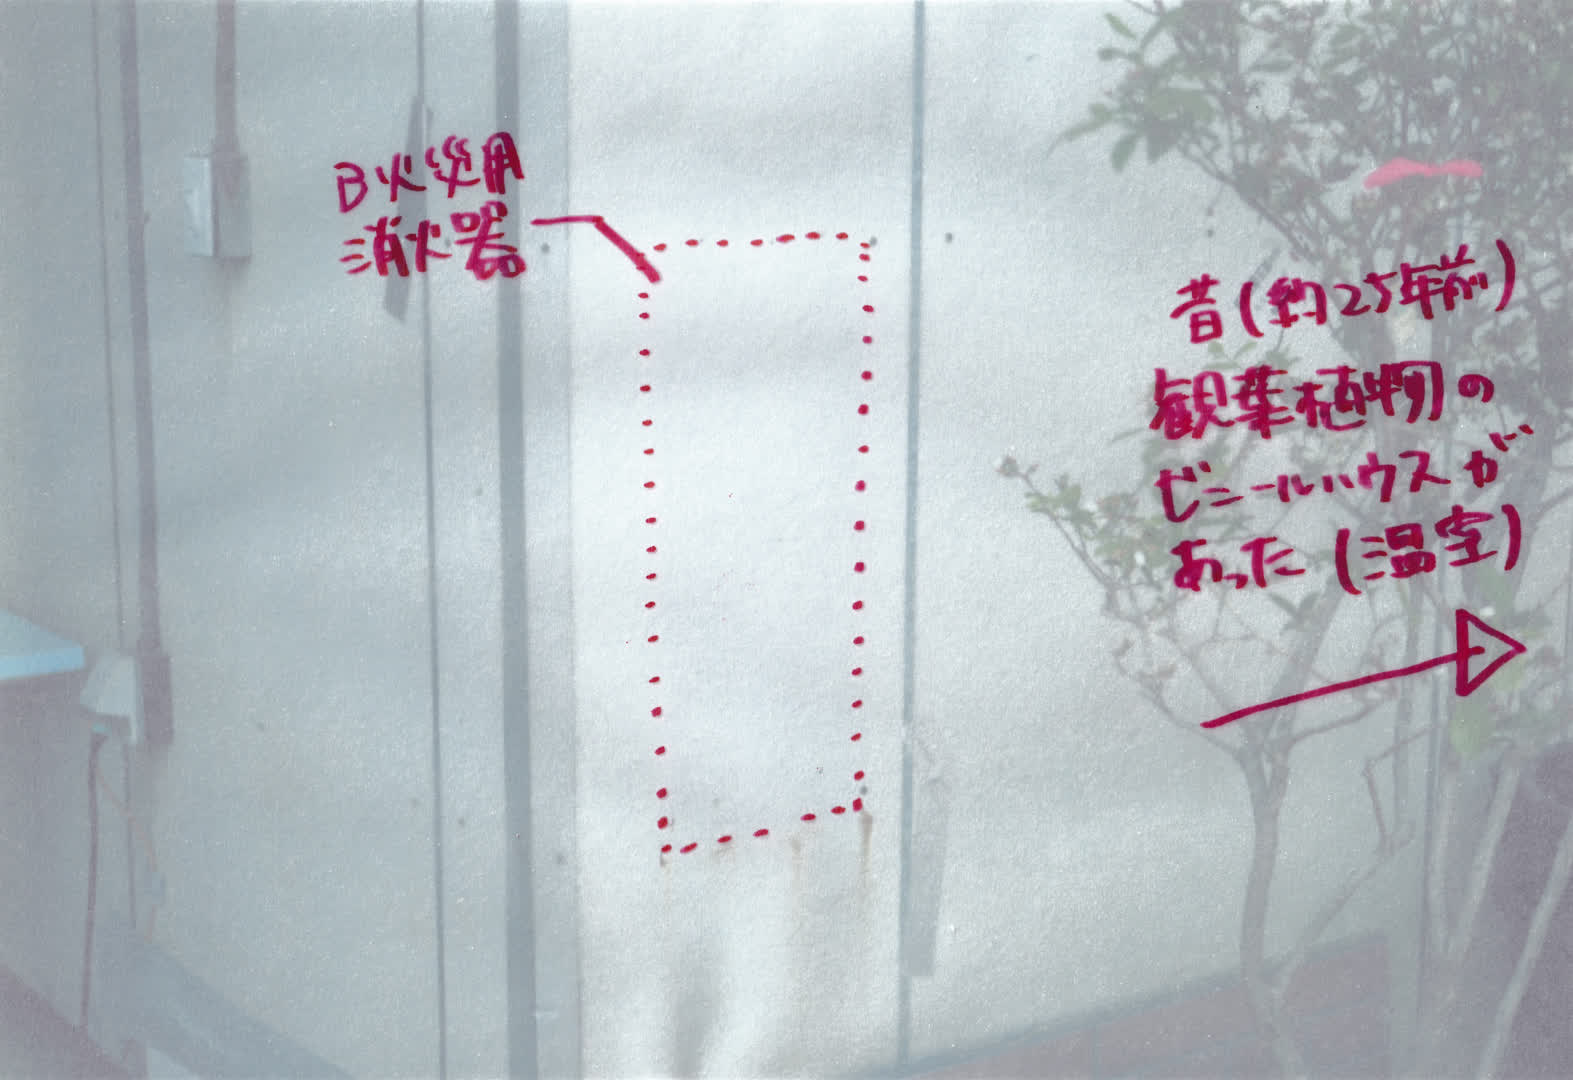 B火災用
消火器
昔(約25年前)
観葉植物の
ビニールハウスが
あった(温室)